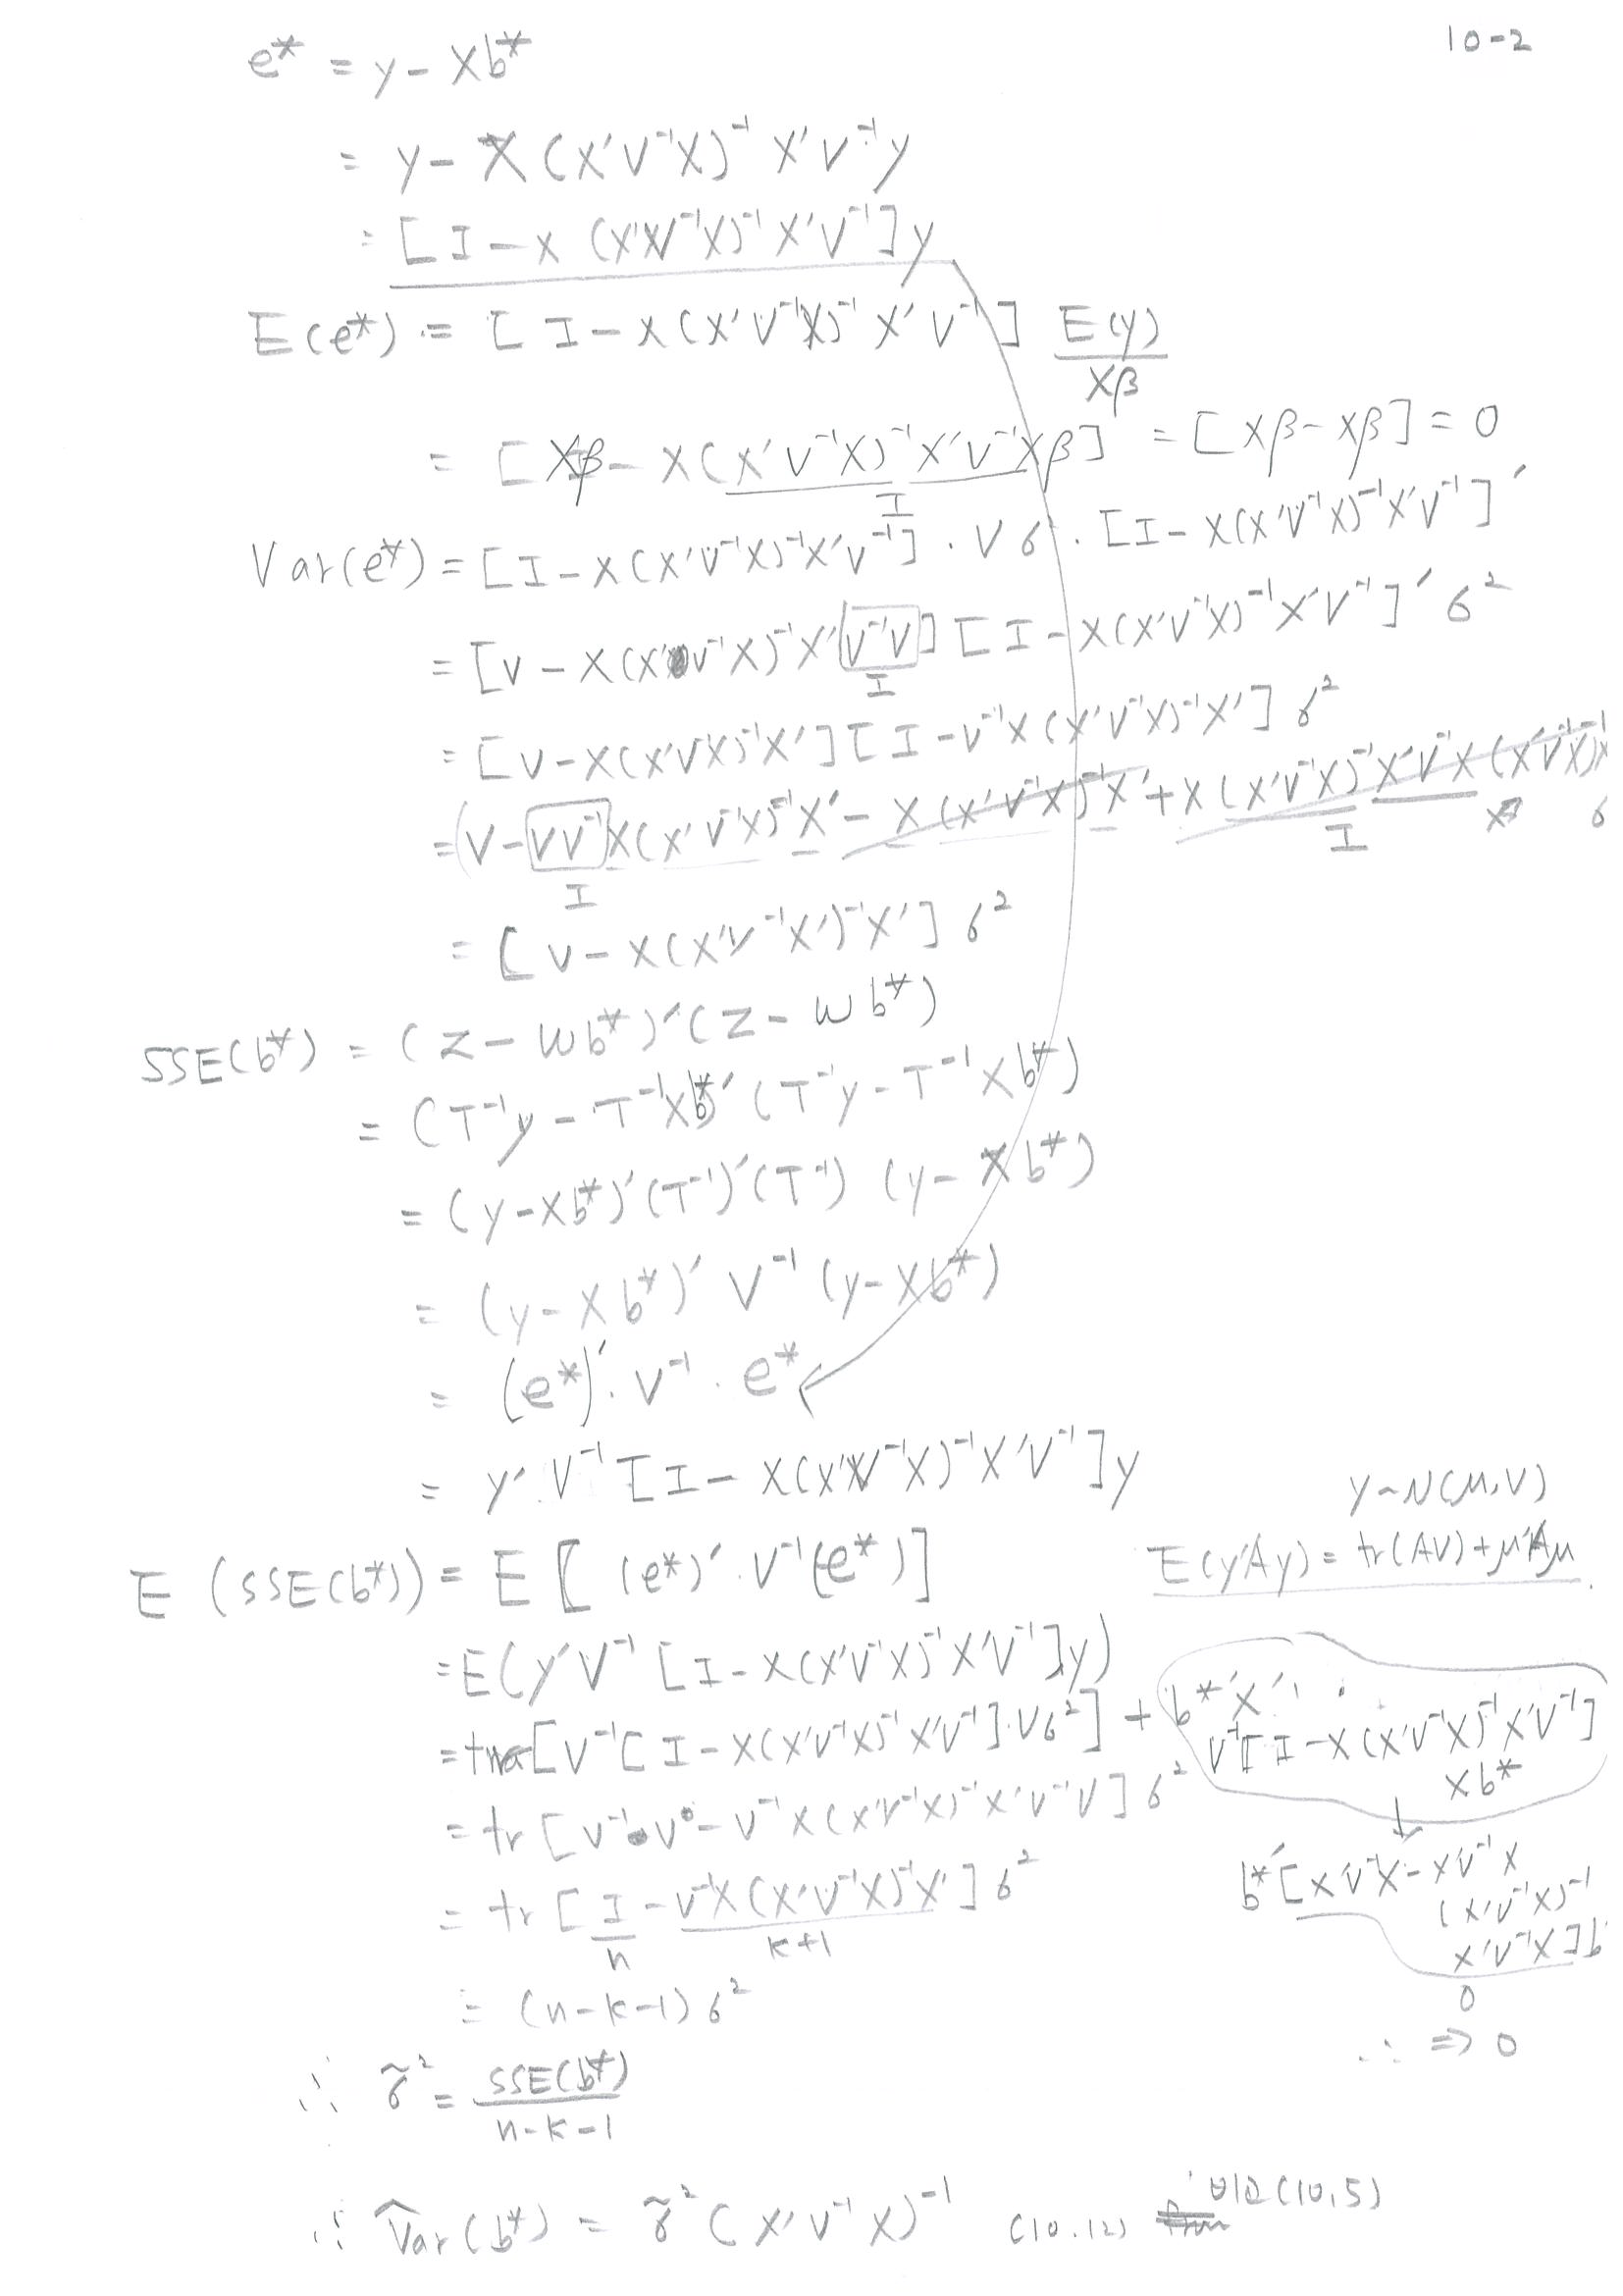 10-2
e* = y - Xb*
= y - X(X'V⁻¹X)⁻¹X'V⁻¹y
= [I - X(X'V⁻¹X)⁻¹X'V⁻¹]y
E(e*) = [I - X(X'V⁻¹X)⁻¹X'V⁻¹] E(y)
Xβ
= [Xβ - X(X'V⁻¹X)⁻¹X'V⁻¹Xβ] = [Xβ - Xβ] = 0
I
Var(e*) = [I - X(X'V⁻¹X)⁻¹X'V⁻¹] · Vσ · [I - X(X'V⁻¹X)⁻¹X'V⁻¹]'
= [V - X(X'V⁻¹X)⁻¹X'V⁻¹V] [I - X(X'V⁻¹X)⁻¹X'V⁻¹]' σ²
I
= [V - X(X'VX)⁻¹X'] [I - V⁻¹X(X'V⁻¹X)⁻¹X'] σ²
= (V - VV⁻¹X(X'V⁻¹X)⁻¹X' - X(X'V⁻¹X)⁻¹X' + X(X'V⁻¹X)⁻¹X'V⁻¹X(X'V⁻¹X)⁻¹X' σ
I I
= [V - X(X'V⁻¹X')⁻¹X'] σ²
SSE(b*) = (Z - Wb*)'(Z - Wb*)
= (T⁻¹y - T⁻¹Xb*)'(T⁻¹y - T⁻¹Xb*)
= (y - Xb*)'(T⁻¹)'(T⁻¹) (y - Xb*)
= (y - Xb*)' V⁻¹ (y - Xb*)
= (e*)' · V⁻¹ · e*
= y' V⁻¹ [I - X(X'V⁻¹X)⁻¹X'V⁻¹]y
y ~ N(μ, V)
E(SSE(b*)) = E[(e*)' · V⁻¹(e*)]
E(y'Ay) = tr(AV) + μ'Aμ
= E(y'V⁻¹ [I - X(X'V⁻¹X)⁻¹X'V⁻¹]y)
= tra[V⁻¹[I - X(X'V⁻¹X)⁻¹X'V⁻¹] · Vσ²] + b*'X'
V⁻¹[I - X(X'V⁻¹X)⁻¹X'V⁻¹]
Xb*
= tr[V⁻¹V - V⁻¹X(X'V⁻¹X)⁻¹X'V⁻¹V] σ²
b*'[X'V⁻¹X - X'V⁻¹X
(X'V⁻¹X)⁻¹
X'V⁻¹X]b
0
∴ ⇒ 0
= tr[I - V⁻¹X(X'V⁻¹X)⁻¹X'] σ²
n k+1
= (n-k-1)σ²
∴ σ̃² = SSE(b*)
n-k-1
∴ V̂ar(b*) = σ̃²(X'V⁻¹X)⁻¹ (10.12) (10.5)